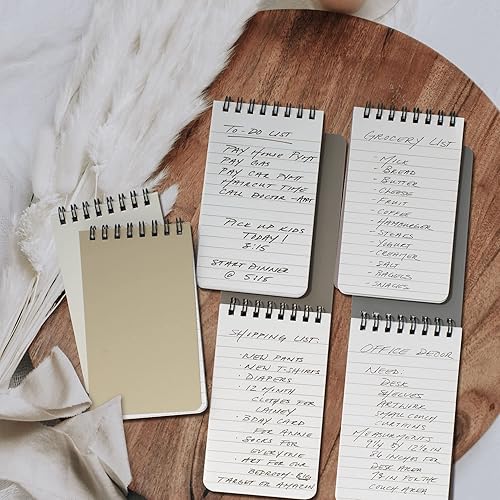 TO-DO LIST
PAY HOUSE PYMT
PAY GAS
PAY CAR PYMT
HAIRCUT TIME
CALL DOCTOR - APT
PICK UP KIDS
TODAY!
8:15
START DINNER
@ 5:15
GROCERY LIST
- MILK
- BREAD
- BUTTER
- CHEESE
- FRUIT
- COFFEE
- HAMBURGER
- STEAKS
- YOGURT
- CREAMER
- BAGELS
- SNACKS
SHOPPING LIST:
· NEW PANTS
· NEW T-SHIRTS
· DIAPERS
· 12 MONTH
CLOTHES FOR
LAINEY
· BDAY CARD
FOR ANNIE
· SOCKS FOR
EVERYONE
· ART FOR OUR
BEDROOM - BIG
TARGET OR AMAZON
OFFICE DECOR
NEED:
DESK
SHELVES
ARTWORK
SMALL COUCH
CURTAINS
MEASUREMENTS
BY
INCHES FOR
DESK AREA
IN FOR THE
COUCH AREA